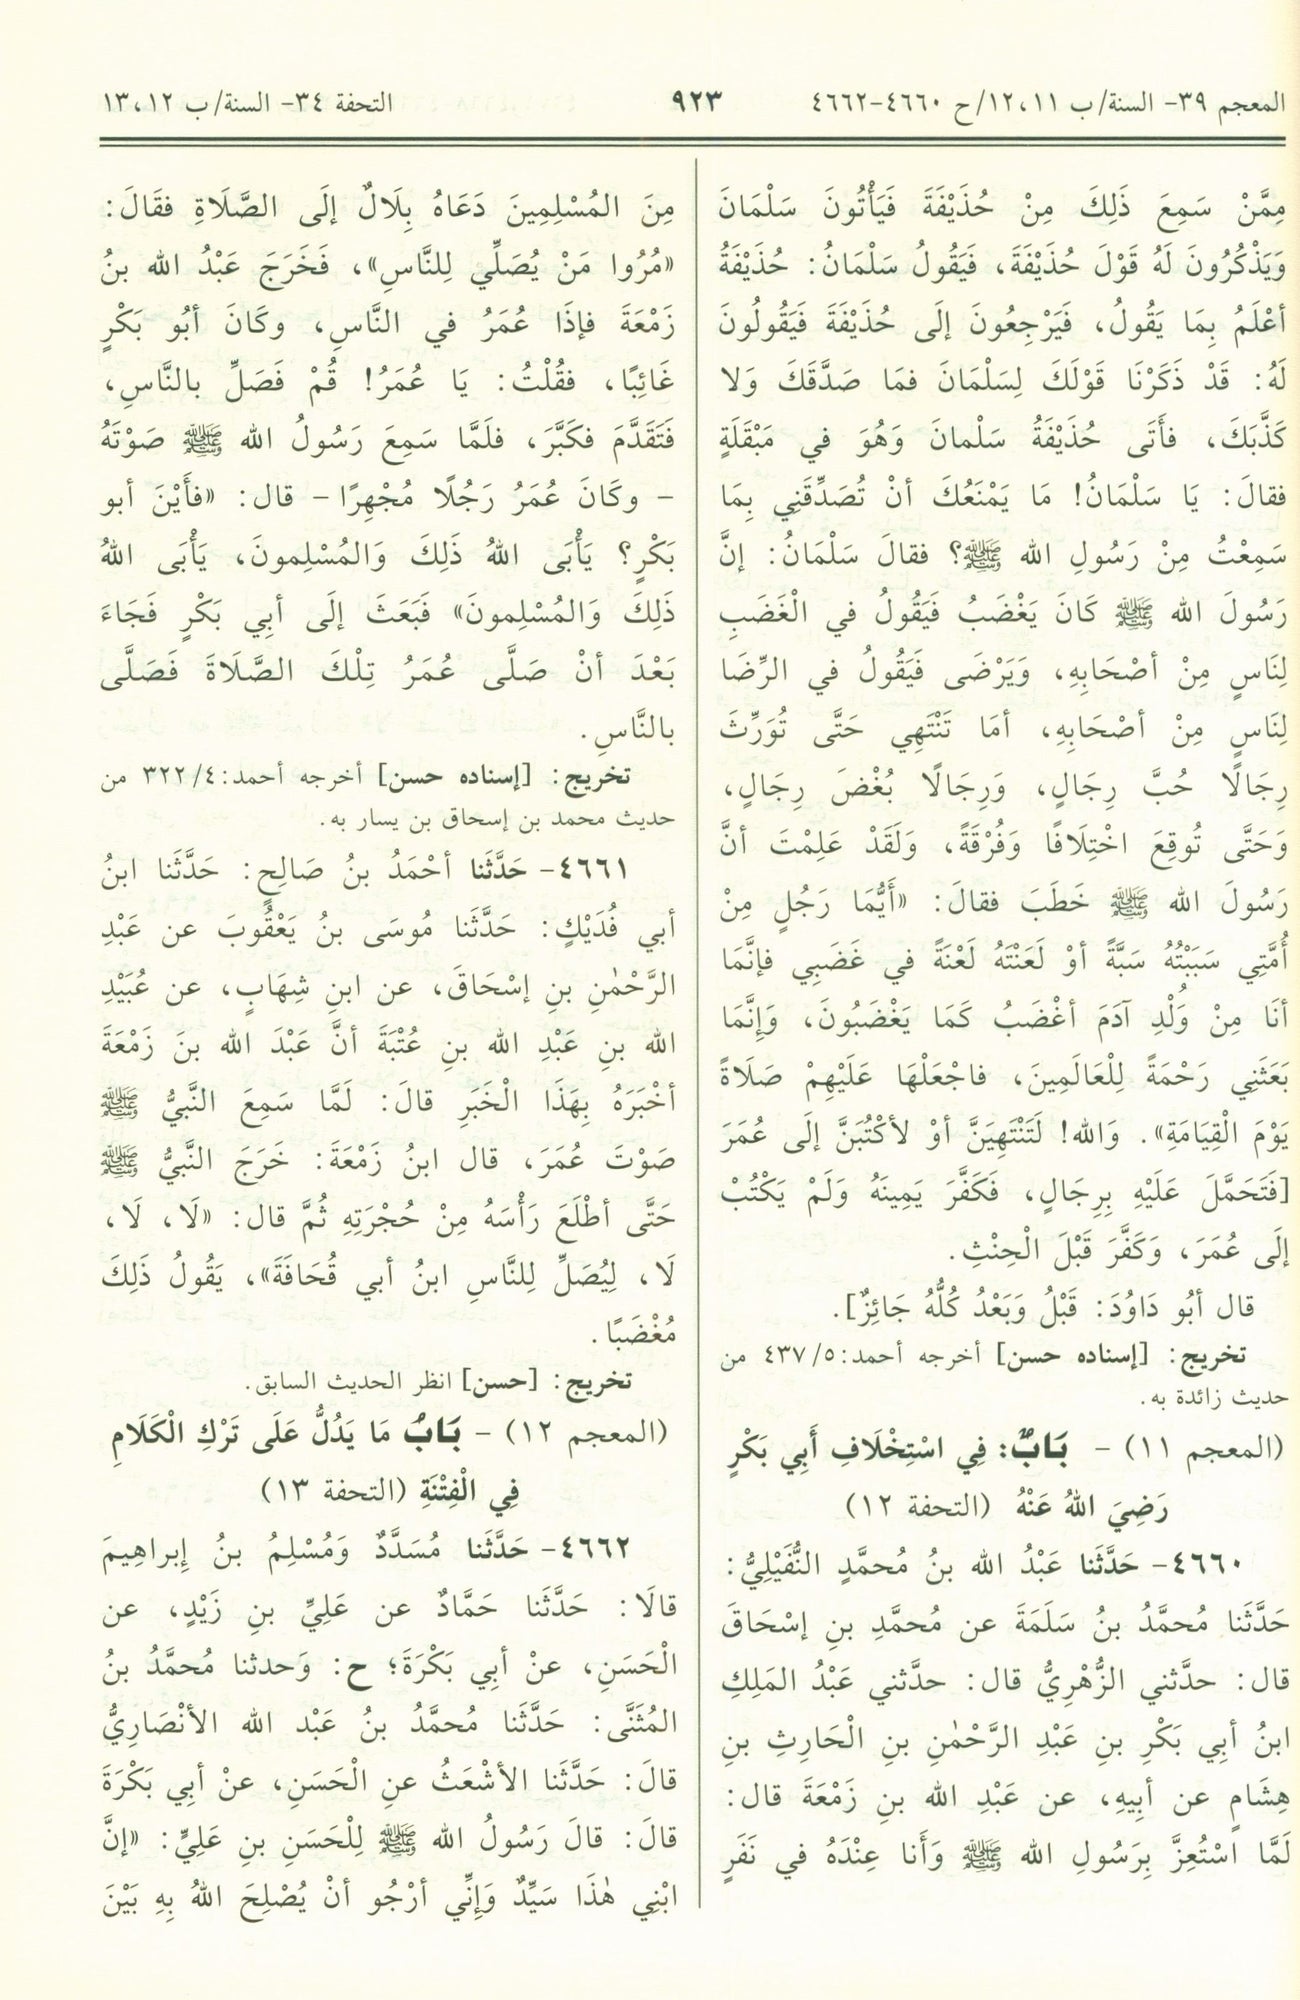 المعجم ٣٩- السنة/ ب ١١، ١٢/ ح ٤٦٦٠-٤٦٦٢
٩٢٣
التحفة ٣٤- السنة/ ب ١٢، ١٣
مِمَّنْ سَمِعَ ذَلِكَ مِنْ حُذَيْفَةَ فَيَأْتُونَ سَلْمَانَ
وَيَذْكُرُونَ لَهُ قَوْلَ حُذَيْفَةَ، فَيَقُولُ سَلْمَانُ: حُذَيْفَةُ
أعْلَمُ بِمَا يَقُولُ، فَيَرْجِعُونَ إلَى حُذَيْفَةَ فَيَقُولُونَ
لَهُ: قَدْ ذَكَرْنَا قَوْلَكَ لِسَلْمَانَ فمَا صَدَّقَكَ وَلا
كَذَّبَكَ، فأَتَى حُذَيْفَةُ سَلْمانَ وَهُوَ في مَبْقَلَةٍ
فقالَ: يَا سَلْمَانُ! مَا يَمْنَعُكَ أنْ تُصَدِّقَنِي بِمَا
سَمِعْتُ مِنْ رَسُولِ الله ﷺ؟ فقالَ سَلْمَانُ: إنَّ
رَسُولَ الله ﷺ كَانَ يَغْضَبُ فَيَقُولُ في الْغَضَبِ
لِنَاسٍ مِنْ أصْحَابِهِ، وَيَرْضَى فَيَقُولُ في الرِّضَا
لِنَاسٍ مِنْ أصْحَابِهِ، أمَا تَنْتَهِي حَتَّى تُوَرِّثَ
رِجَالًا حُبَّ رِجَالٍ، وَرِجَالًا بُغْضَ رِجَالٍ،
وَحَتَّى تُوقِعَ اخْتِلَافًا وَفُرْقَةً، وَلَقَدْ عَلِمْتَ أنَّ
رَسُولَ الله ﷺ خَطَبَ فقالَ: «أَيُّمَا رَجُلٍ مِنْ
أُمَّتِي سَبَبْتُهُ سَبَّةً أوْ لَعَنْتَهُ لَعْنَةً في غَضَبِي فإنَّمَا
أنَا مِنْ وُلْدِ آدَمَ أغْضَبُ كَمَا يَغْضَبُونَ، وَإِنَّمَا
بَعَثَنِي رَحْمَةً لِلْعَالَمِينَ، فاجْعَلْهَا عَلَيْهِمْ صَلَاةً
يَوْمَ الْقِيَامَةِ». وَالله! لَتَنْتَهِيَنَّ أوْ لأكْتُبَنَّ إلَى عُمَرَ
[فَتَحَمَّلَ عَلَيْهِ بِرِجَالٍ، فَكَفَّرَ يَمِينَهُ وَلَمْ يَكْتُبْ
إلَى عُمَرَ، وَكَفَّرَ قَبْلَ الْحِنْثِ.
قال أبُو دَاوُدَ: قَبْلُ وَبَعْدُ كُلُّهُ جَائِزٌ].
تخريج: [إسناده حسن] أخرجه أحمد: ٥/ ٤٣٧ من
حديث زائدة به.
(المعجم ١١) - بَابٌ: فِي اسْتِخْلَافِ أَبِي بَكْرٍ
رَضِيَ اللهُ عَنْهُ (التحفة ١٢)
٤٦٦٠- حَدَّثَنا عَبْدُ الله بنُ مُحمَّدٍ النُّفَيْلِيُّ:
حَدَّثَنا مُحمَّدُ بنُ سَلَمَةَ عن مُحمَّدِ بنِ إسْحَاقَ
قال: حدَّثني الزُّهْرِيُّ قال: حدَّثني عَبْدُ المَلِكِ
ابنُ أبِي بَكْرِ بنِ عَبْدِ الرَّحْمٰنِ بنِ الْحَارِثِ بنِ
هِشَامٍ عن أبِيهِ، عن عَبْدِ الله بنِ زَمْعَةَ قال:
لَمَّا اسْتُعِزَّ بِرَسُولِ الله ﷺ وَأَنا عِنْدَهُ في نَفَرٍ
مِنَ المُسْلِمِينَ دَعَاهُ بِلَالٌ إلَى الصَّلَاةِ فقَالَ:
«مُرُوا مَنْ يُصَلِّي لِلنَّاسِ»، فَخَرَجَ عَبْدُ الله بنُ
زَمْعَةَ فإذَا عُمَرُ في النَّاسِ، وكَانَ أبُو بَكْرٍ
غَائِبًا، فقُلْتُ: يَا عُمَرُ! قُمْ فَصَلِّ بالنَّاسِ،
فَتَقَدَّمَ فكَبَّرَ، فلَمَّا سَمِعَ رَسُولُ الله ﷺ صَوْتَهُ
- وكَانَ عُمَرُ رَجُلًا مُجْهِرًا - قال: «فأَيْنَ أبو
بَكْرٍ؟ يَأْبَى اللهُ ذَلِكَ وَالمُسْلِمونَ، يَأْبَى اللهُ
ذَلِكَ وَالمُسْلِمونَ» فَبَعَثَ إلَى أبِي بَكْرٍ فَجَاءَ
بَعْدَ أنْ صَلَّى عُمَرُ تِلْكَ الصَّلَاةَ فَصَلَّى
بالنَّاسِ.
تخريج: [إسناده حسن] أخرجه أحمد: ٤/ ٣٢٢ من
حديث محمد بن إسحاق بن يسار به.
٤٦٦١- حَدَّثَنا أحْمَدُ بنُ صَالِحٍ: حَدَّثَنا ابنُ
أبي فُدَيْكٍ: حَدَّثَنا مُوسَى بنُ يَعْقُوبَ عن عَبْدِ
الرَّحْمٰنِ بنِ إسْحَاقَ، عن ابنِ شِهَابٍ، عن عُبَيْدِ
الله بنِ عَبْدِ الله بنِ عُتْبَةَ أنَّ عَبْدَ الله بنَ زَمْعَةَ
أخْبَرَهُ بِهَذَا الْخَبَرِ قالَ: لَمَّا سَمِعَ النَّبيُّ ﷺ
صَوْتَ عُمَرَ، قال ابنُ زَمْعَةَ: خَرَجَ النَّبيُّ ﷺ
حَتَّى أطْلَعَ رَأْسَهُ مِنْ حُجْرَتِهِ ثُمَّ قال: «لَا، لَا،
لَا، لِيُصَلِّ لِلنَّاسِ ابنُ أبي قُحَافَةَ»، يَقُولُ ذَلِكَ
مُغْضَبًا.
تخريج: [حسن] انظر الحديث السابق.
(المعجم ١٢) - بَابُ مَا يَدُلُّ عَلَى تَرْكِ الْكَلَامِ
فِي الْفِتْنَةِ (التحفة ١٣)
٤٦٦٢- حَدَّثَنا مُسَدَّدٌ وَمُسْلِمُ بنُ إبراهِيمَ
قالَا: حَدَّثَنا حَمَّادٌ عن عَلِيِّ بنِ زَيْدٍ، عن
الْحَسَنِ، عنْ أبِي بَكْرَةَ؛ ح: وَحدثنا مُحمَّدُ بنُ
المُثَنَّى: حَدَّثَنا مُحمَّدُ بنُ عَبْدِ الله الأنْصَارِيُّ
قالَ: حَدَّثَنا الأشْعَثُ عنِ الْحَسَنِ، عنْ أبِي بَكْرَةَ
قالَ: قالَ رَسُولُ الله ﷺ لِلْحَسَنِ بنِ عَلِيٍّ: «إنَّ
ابْنِي هٰذَا سَيِّدٌ وَإِنِّي أرْجُو أنْ يُصْلِحَ اللهُ بِهِ بَيْنَ